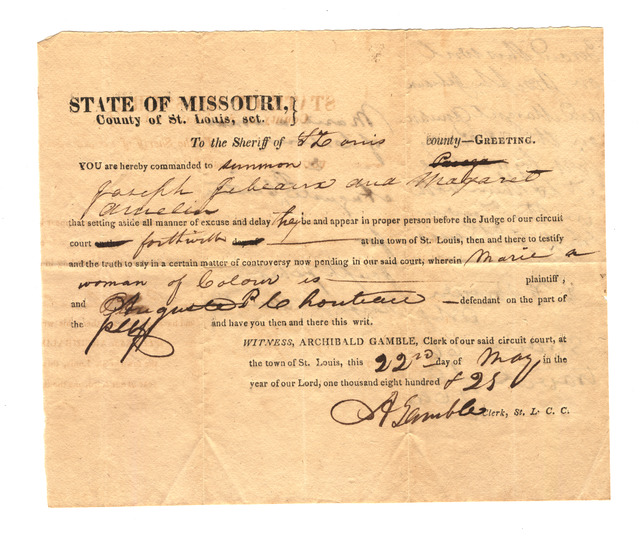 STATE OF MISSOURI,}
County of St. Louis, sct.
To the Sheriff of St Louis county—GREETING.
YOU are hereby commanded to summon
Joseph Jebeaux and Magaret
Amelin
that setting aside all manner of excuse and delay they be and appear in proper person before the Judge of our circuit
court forthwith at the town of St. Louis, then and there to testify
and the truth to say in a certain matter of controversy now pending in our said court, wherein Marie a
woman of Colour is plaintiff,
and Auguste P Chouteau defendant on the part of
the plff and have you then and there this writ.
WITNESS, ARCHIBALD GAMBLE, Clerk of our said circuit court, at
the town of St. Louis, this 22nd day of May in the
year of our Lord, one thousand eight hundred & 25
A Gamble Clerk, St. L. C. C.